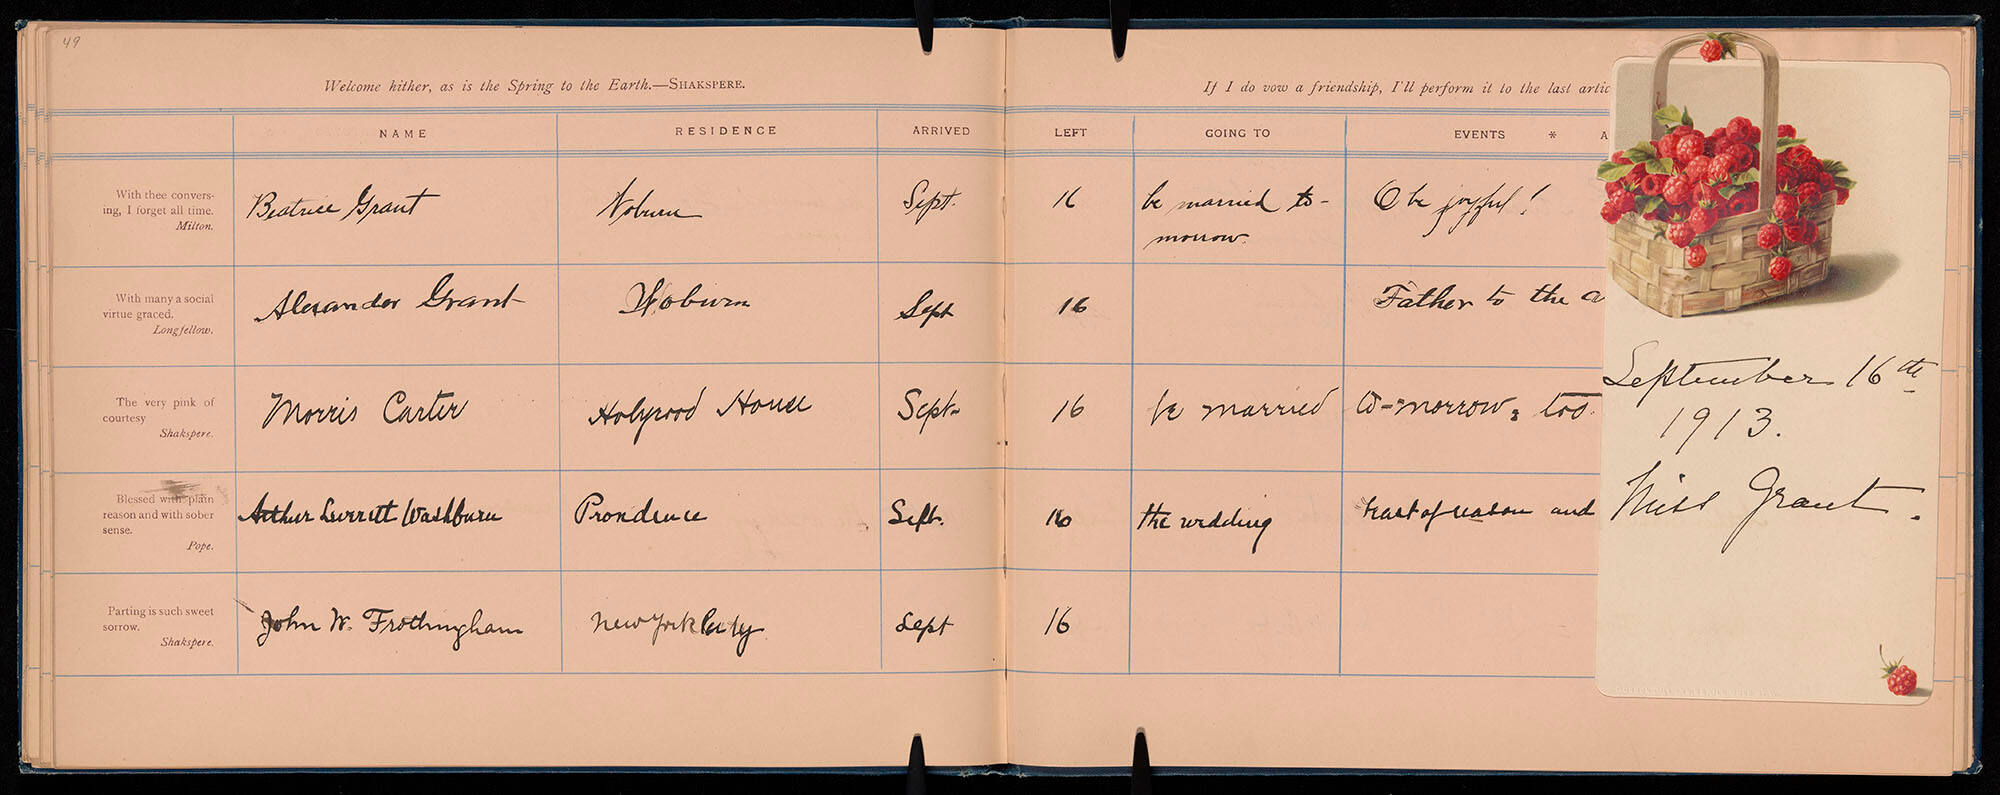 49
Welcome hither, as is the Spring to the Earth.—SHAKSPERE.
If I do vow a friendship, I'll perform it to the last artic
NAME RESIDENCE ARRIVED LEFT GOING TO EVENTS * A
With thee convers-
ing, I forget all time.
Milton.
Beatrice Grant Woburn Sept. 16 be married to-
morrow. O be joyful!
With many a social
virtue graced.
Longfellow.
Alexander Grant Woburn Sept 16 Father to the
The very pink of
courtesy
Shakspere.
Morris Carter Holyrood House Sept. 16 be married to-morrow, too.
Blessed with plain
reason and with sober
sense.
Pope.
Arthur Leverett Washburn Providence Sept. 16 the wedding feast of reason and
Parting is such sweet
sorrow.
Shakspere.
John W. Frothingham New York City Sept 16
September 16th
1913.
Miss Grant.